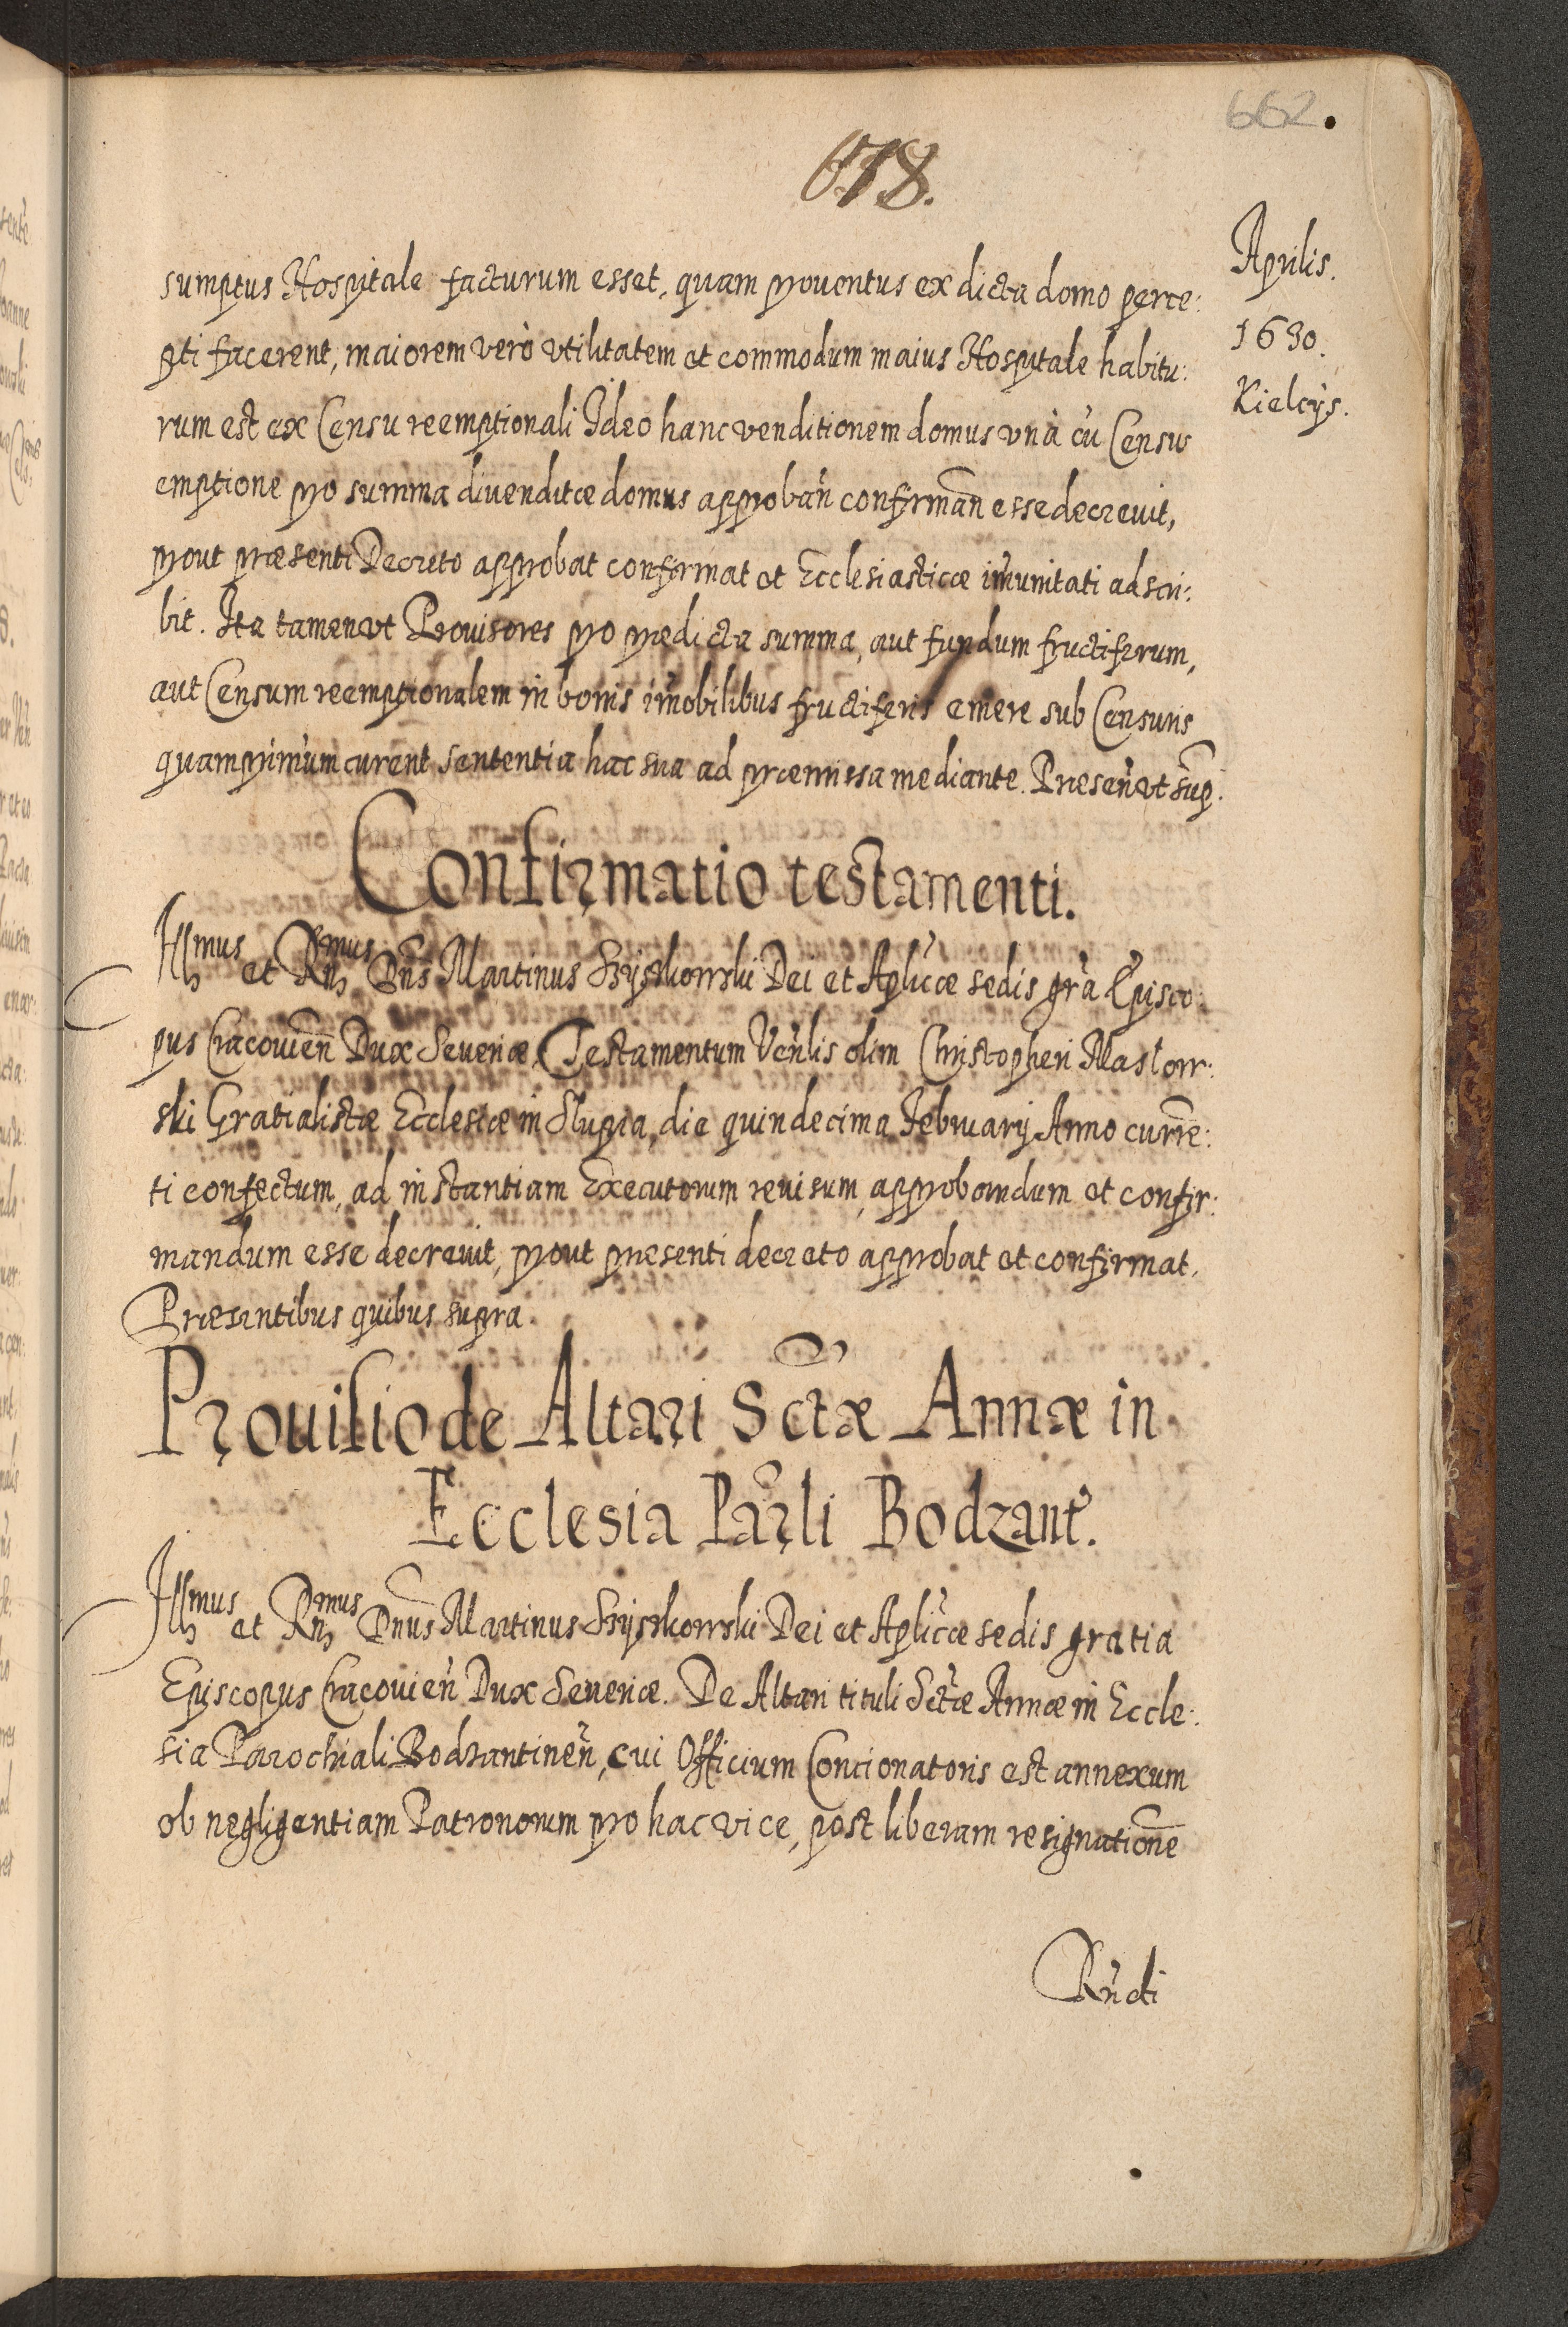 662.
678.
Aprilis.
1630.
Kielcys.
sumptus Hospitale facturum esset, quam prouentus ex dicta domo perce:
pti facerent, maiorem verò vtilitatem et commodum maius Hospitale habitu:
rum est ex Censu reemptionali Ideo hanc venditionem domus vnà cū Census
emptione pro summa divenditæ domus approbañ confirmañ esse decreuit,
prout præsenti Decreto approbat confirmat et Ecclesiasticæ im̃unitati adscri:
bit. Ita tamen vt Prouisores pro prædicta summa, aut fundum fructiferum,
aut Censum reemptionalem in bonis im̃obilibus fructiferis emere sub Censuris
quamprimum curent sententia hac sua ad præmissa mediante. Præseñ vt sup̃.
Confirmatio testamenti.
Illmus et Rñmus Dñs Martinus Szyszkowski Dei et Aplicæ sedis gr̃a Episco:
pus Cracouieñ Dux Seueriæ, Testamentum Veñlis olim Christopheri Maslow:
ski Gratialistæ Ecclesiæ in Slupia, die quindecima February Anno curre̅:
ti confectum, ad instantiam Executorum reuisum, approbandum et confir:
mandum esse decreuit, prout præsenti decreto approbat et confirmat.
Præsentibus quibus supra.
Prouisio de Altari Sctæ Annæ in
Ecclesia Par̃li Bodzant̃.
Illmus et Rñmus Dnus Martinus Szyszkowski Dei et Aplicæ sedis gratia
Episcopus Cracouieñ Dux Seueriæ. De Altari tituli Sctæ Annæ in Eccle:
sia Parochiali Bodzantineñ, cui Officium Concionatoris est annexum
ob negligentiam Patronorum pro hac vice, post liberam resignatione̅
Rñdi